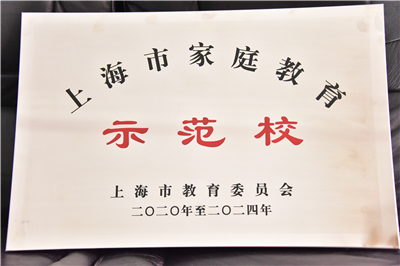 上海市家庭教育
示范校
上海市教育委员会
二〇二〇年至二〇二四年